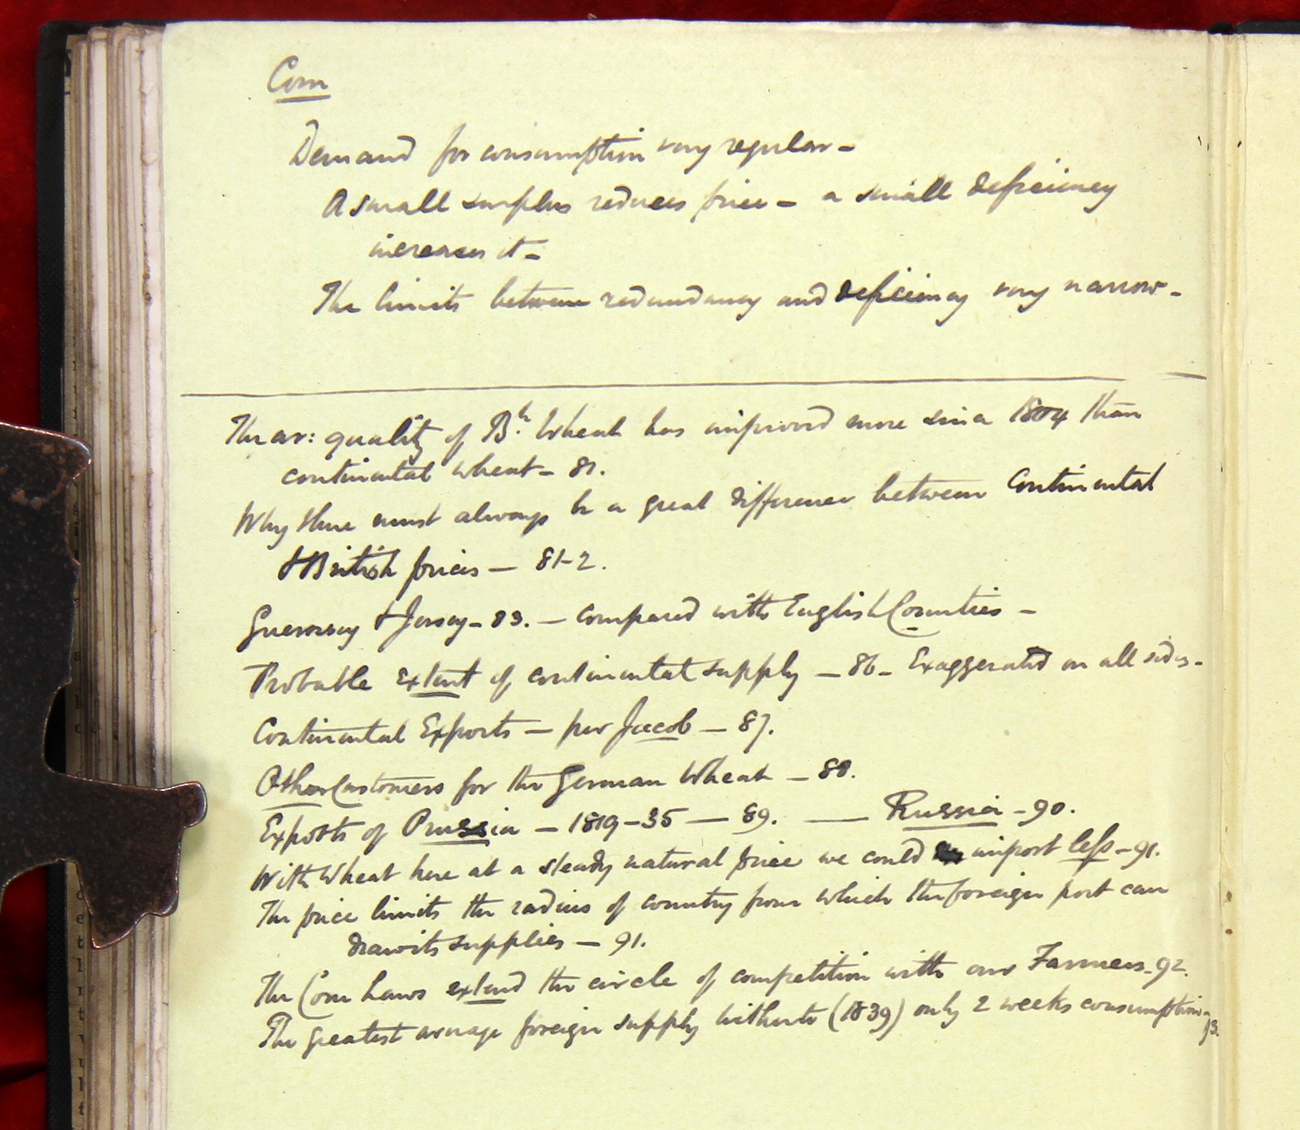 Corn
Demand for consumption very regular -
A small surplus reduces price - a small deficiency
increases it -
The limits between redundancy and deficiency very narrow -
The av: quality of Bh. Wheat has improved more since 1804 than
continental wheat - 81.
Why there must always be a great difference between Continental
& British prices — 81-2.
Guernsey & Jersey - 83. — compared with English Counties -
Probable extent of continental supply — 86 - Exaggerated on all sides -
Continental Exports — per Jacob — 87.
Other Customers for the German Wheat — 88.
Exports of Prussia — 1819-35 — 89. — Russia - 90.
With Wheat here at a steady natural price we could import less - 91.
The price limits the radius of country from which the foreign port can
draw its supplies — 91.
The Corn Laws extend the circle of competition with our Farmers - 92.
The greatest average foreign supply hitherto (1839) only 2 weeks consumption - 93.